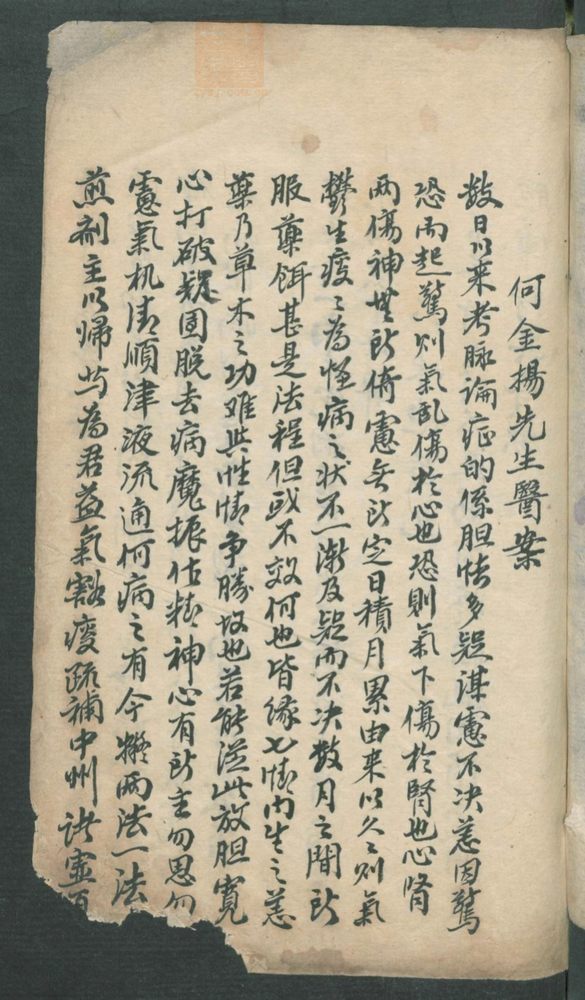 何金揚先生醫案
数日以来考脉論症的係胆怯多疑謀慮不决恙因驚
恐而起驚则氣乱傷於心也恐则氣下傷於腎也心腎
两傷神無所倚慮無所定日積月累由来以久久则氣
鬱生痰痰為怪病之状不一漸及疑而不决数月之間所
服藥餌甚是法程但或不效何也皆缘七情内生之恙
藥乃草木之功难與性情争勝故也若能從此放胆寬
心打破疑團脱去病魔振作精神心有所主勿思勿
慮氣机清順津液流通何病之有今擬两法一法
煎剂主以歸芍為君益氣豁痰疏補中州 虚